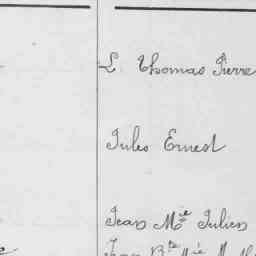 L. Thomas Pierre
Jules Ernest
Jean Mie Julien
Jean Bte Mie